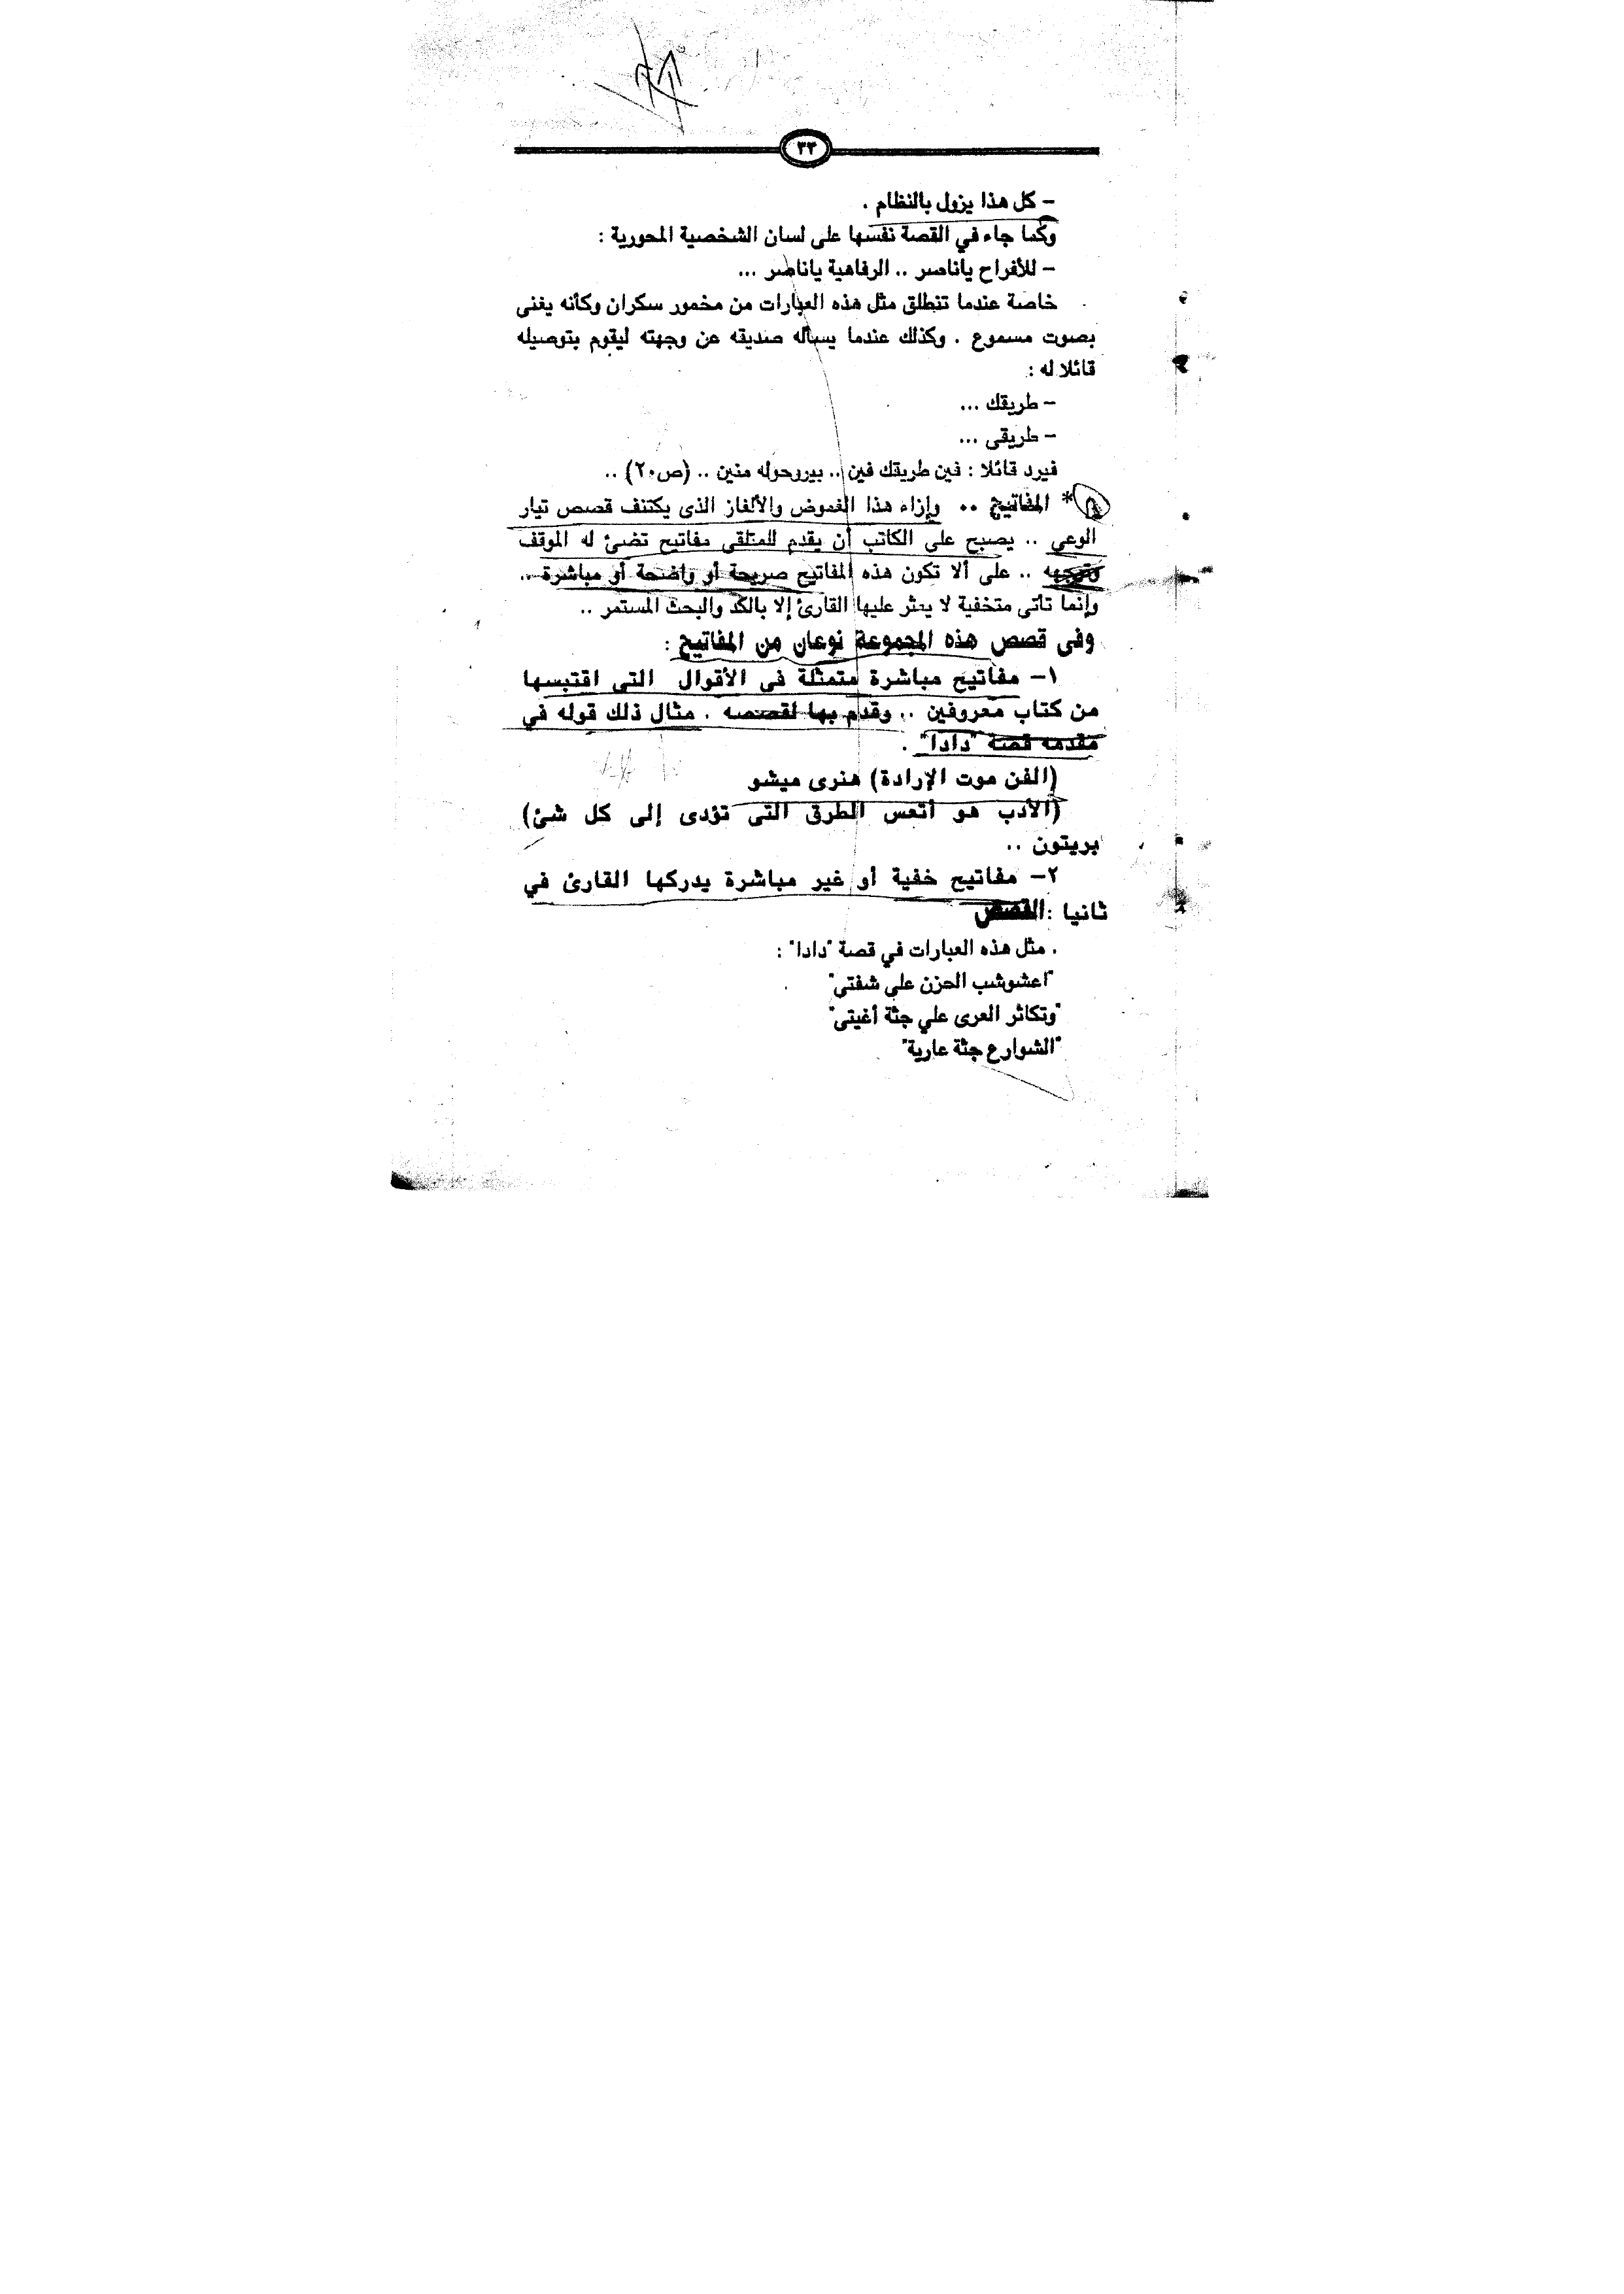 ٣٣
– كل هذا يزول بالنظام .
وكما جاء في القصة نفسها على لسان الشخصية المحورية :
– للأفراح ياناصر .. الرفاهية ياناصر ...
خاصة عندما تنطلق مثل هذه العبارات من مخمور سكران وكأنه يغنى
بصوت مسموع . وكذلك عندما يسأله صديقه عن وجهته ليقوم بتوصيله
قائلا له :
– طريقك ...
– طريقى ...
فيرد قائلا : فين طريقك فين .. بيروحوله منين .. (ص٢٠) ..
* المفاتيح .. وإزاء هذا الغموض والألغاز الذى يكتنف قصص تيار
الوعي .. يصبح على الكاتب أن يقدم للمتلقى مفاتيح تضئ له الموقف
.. على ألا تكون هذه المفاتيح صريحة أو واضحة أو مباشرة ..
وإنما تأتى متخفية لا يعثر عليها القارئ إلا بالكد والبحث المستمر ..
وفى قصص هذه المجموعة نوعان من المفاتيح :
١– مفاتيح مباشرة متمثلة فى الأقوال التى اقتبسها
من كتاب معروفين .. وقدم بها لقصصه . مثال ذلك قوله في
مقدمه قصة "دادا" .
(الفن موت الإرادة) هنرى ميشو
(الأدب هو أتعس الطرق التى تؤدى إلى كل شئ)
بريتون ..
٢– مفاتيح خفية أو غير مباشرة يدركها القارئ في
ثانيا : القصص
. مثل هذه العبارات في قصة "دادا" :
"اعشوشب الحزن على شفتي"
"وتكاثر العرى علي جثة أغيتى"
"الشوارع جثة عارية"